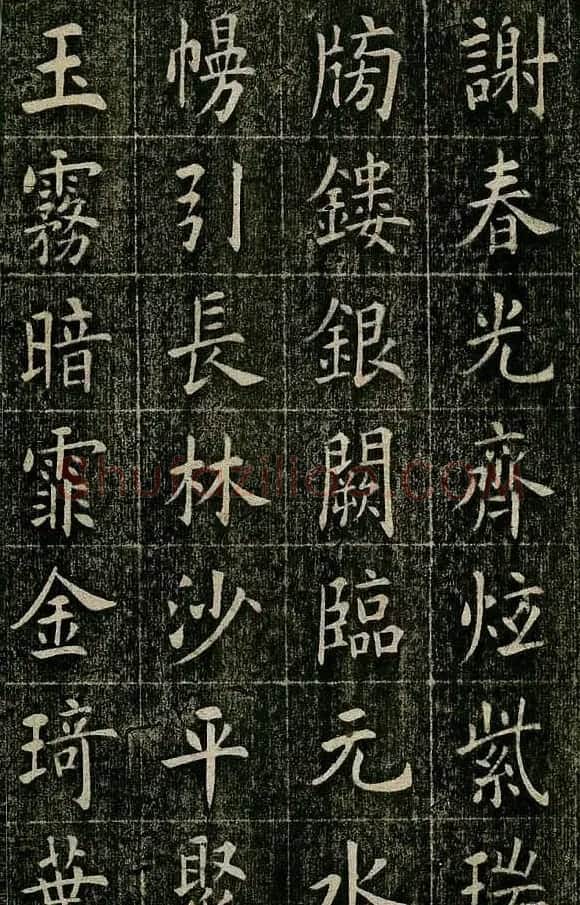 謝春光齊炫紫瑞
牓鏤銀闕臨元水
幔引長林沙平聚
玉霧暗霏金琦葉